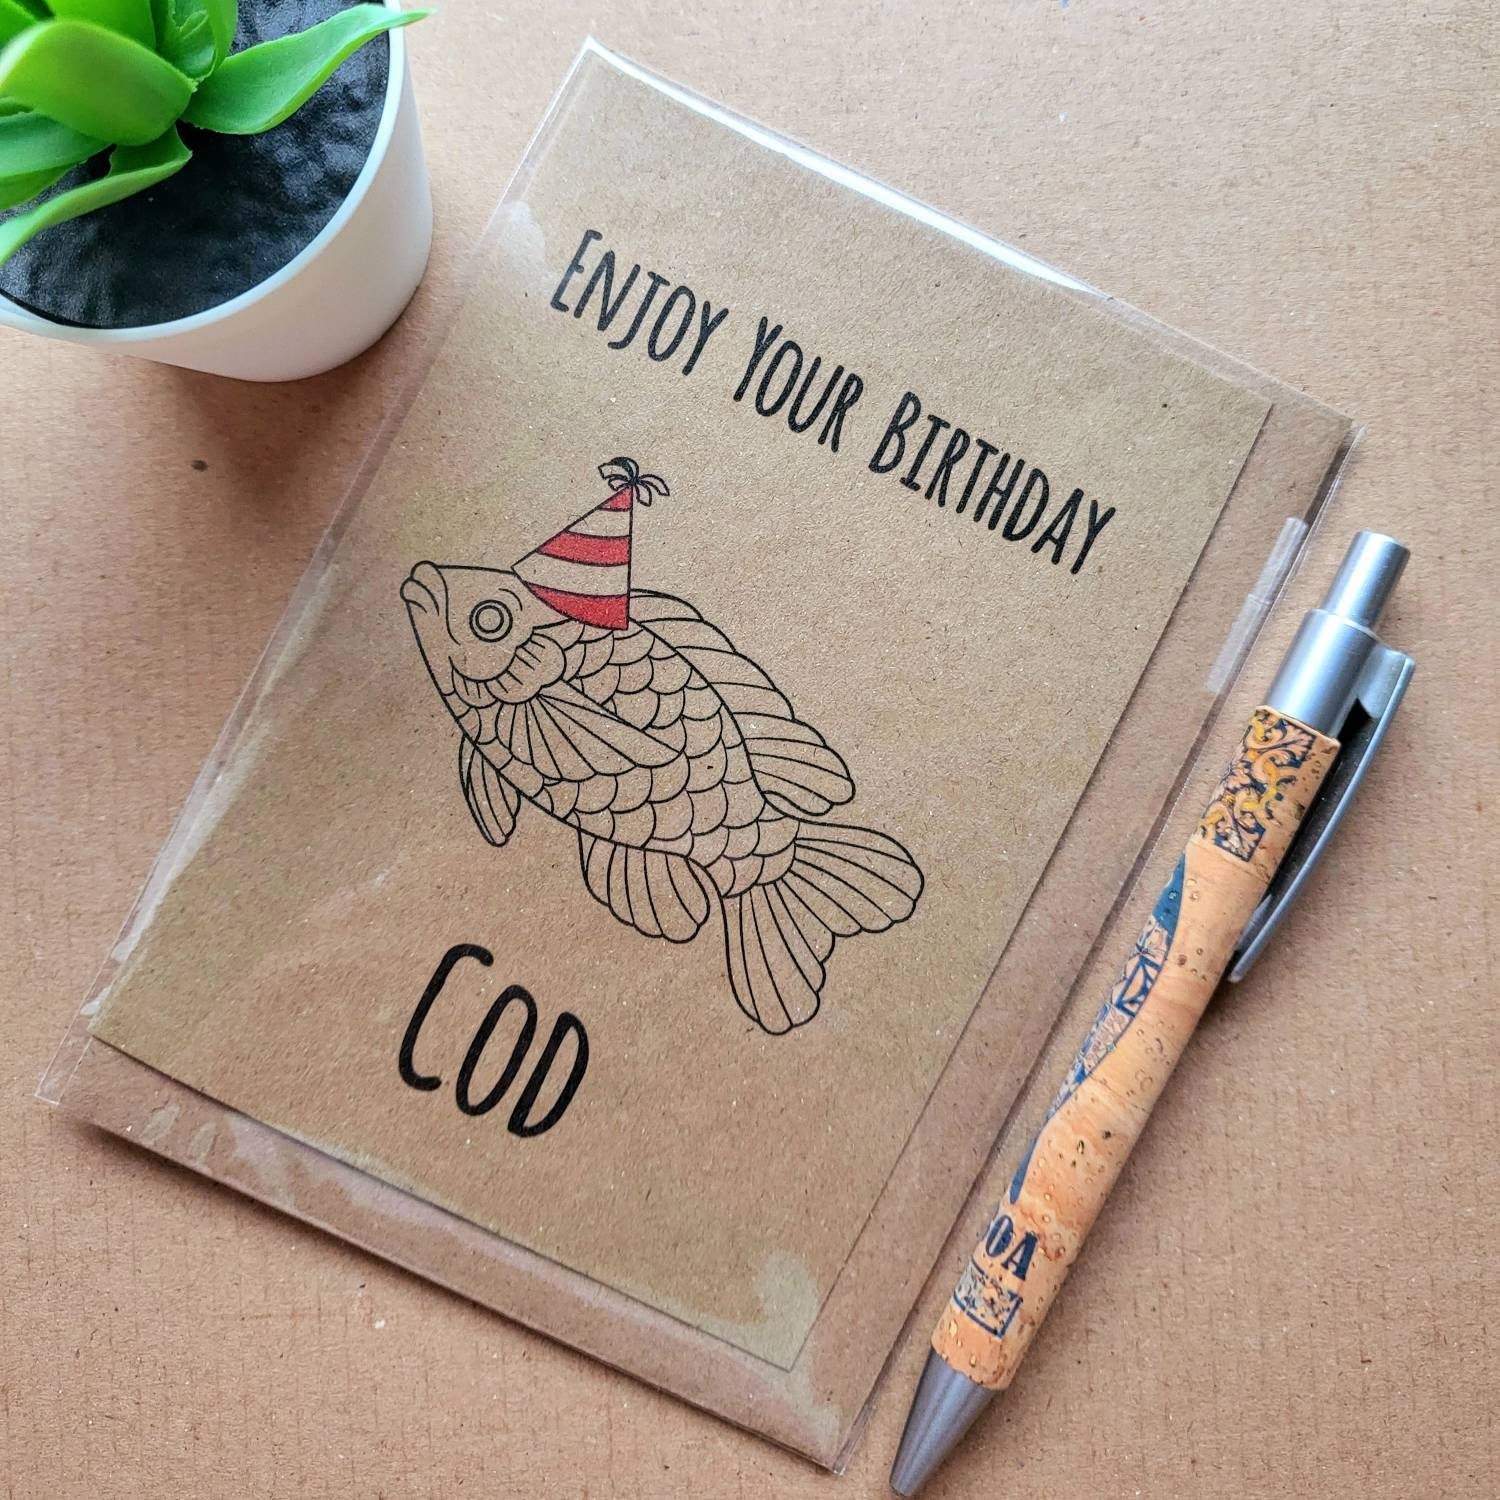 ENJOY YOUR BIRTHDAY
COD
OA